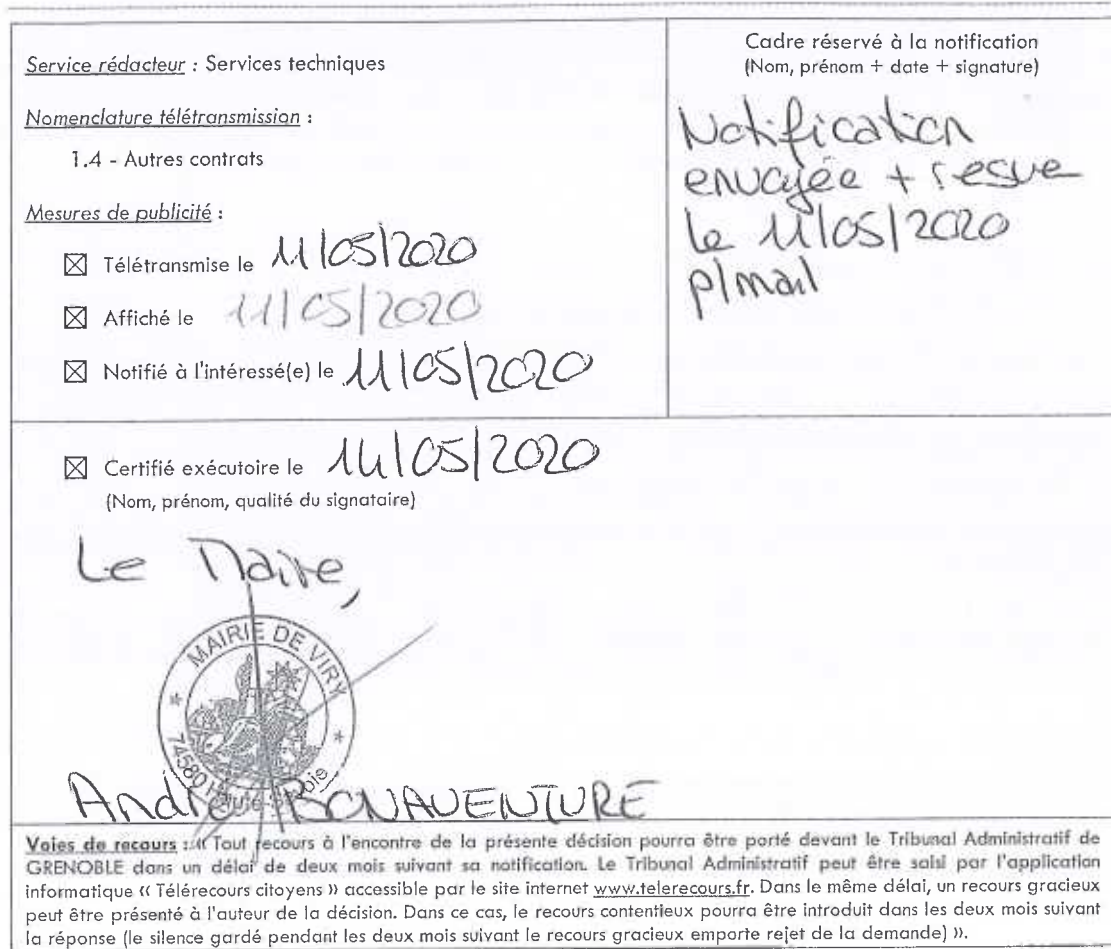 Service rédacteur : Services techniques
Nomenclature télétransmission :
1.4 - Autres contrats
Mesures de publicité :
☒ Télétransmise le 11/05/2020
☒ Affiché le 11/05/2020
☒ Notifié à l'intéressé(e) le 11/05/2020
Cadre réservé à la notification
(Nom, prénom + date + signature)
Notification
envoyée + resue
le 11/05/2020
p/mail
☒ Certifié exécutoire le 11/05/2020
(Nom, prénom, qualité du signataire)
Le Maire,
MAIRIE DE VIRY
74580 Haute-Savoie
André BONAVENTURE
Voies de recours : « Tout recours à l'encontre de la présente décision pourra être porté devant le Tribunal Administratif de
GRENOBLE dans un délai de deux mois suivant sa notification. Le Tribunal Administratif peut être saisi par l'application
informatique « Télérecours citoyens » accessible par le site internet www.telerecours.fr. Dans le même délai, un recours gracieux
peut être présenté à l'auteur de la décision. Dans ce cas, le recours contentieux pourra être introduit dans les deux mois suivant
la réponse (le silence gardé pendant les deux mois suivant le recours gracieux emporte rejet de la demande) ».